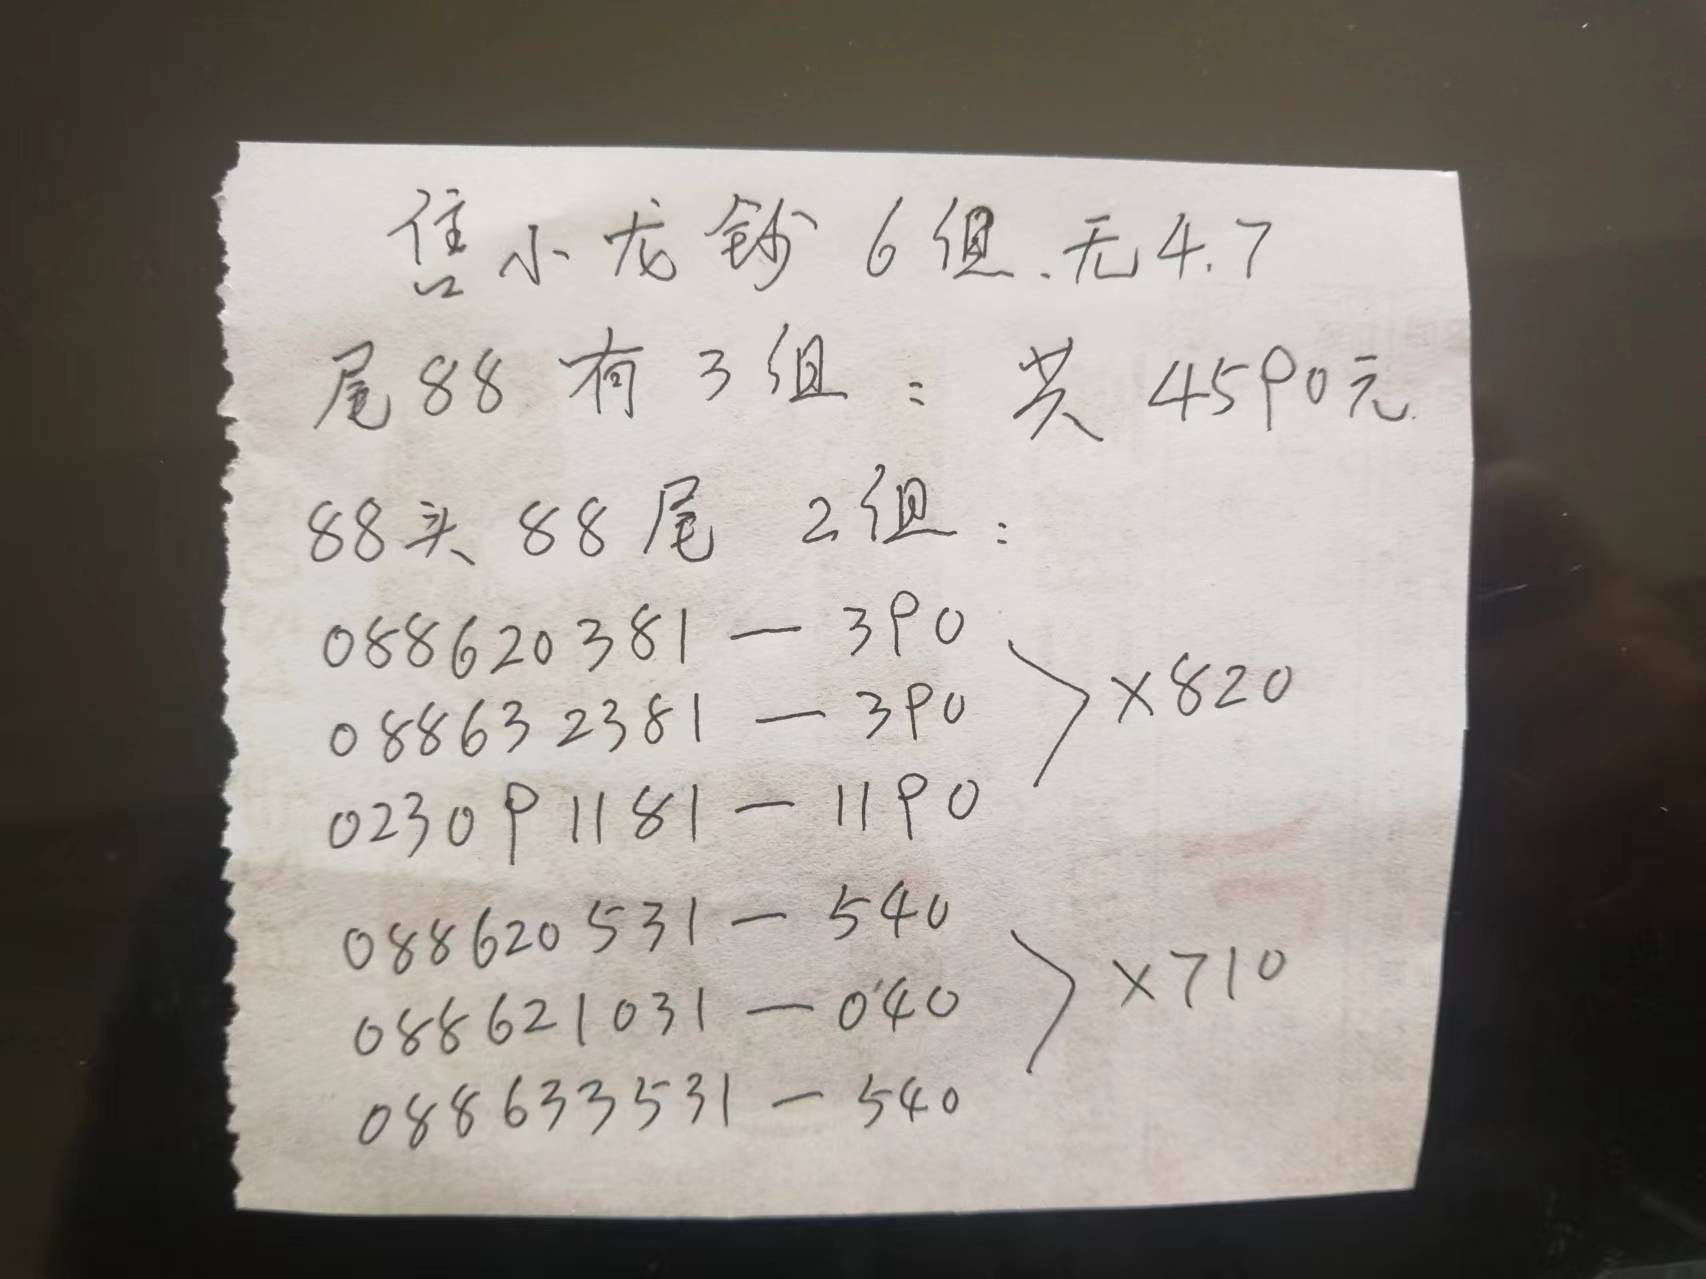 售小龙钞6组.无4.7
尾88有3组：共4590元
88头88尾 2组：
088620381—390
088632381—390
×820
023091181—1190
088620531—540
088621031—040
×710
088633531—540